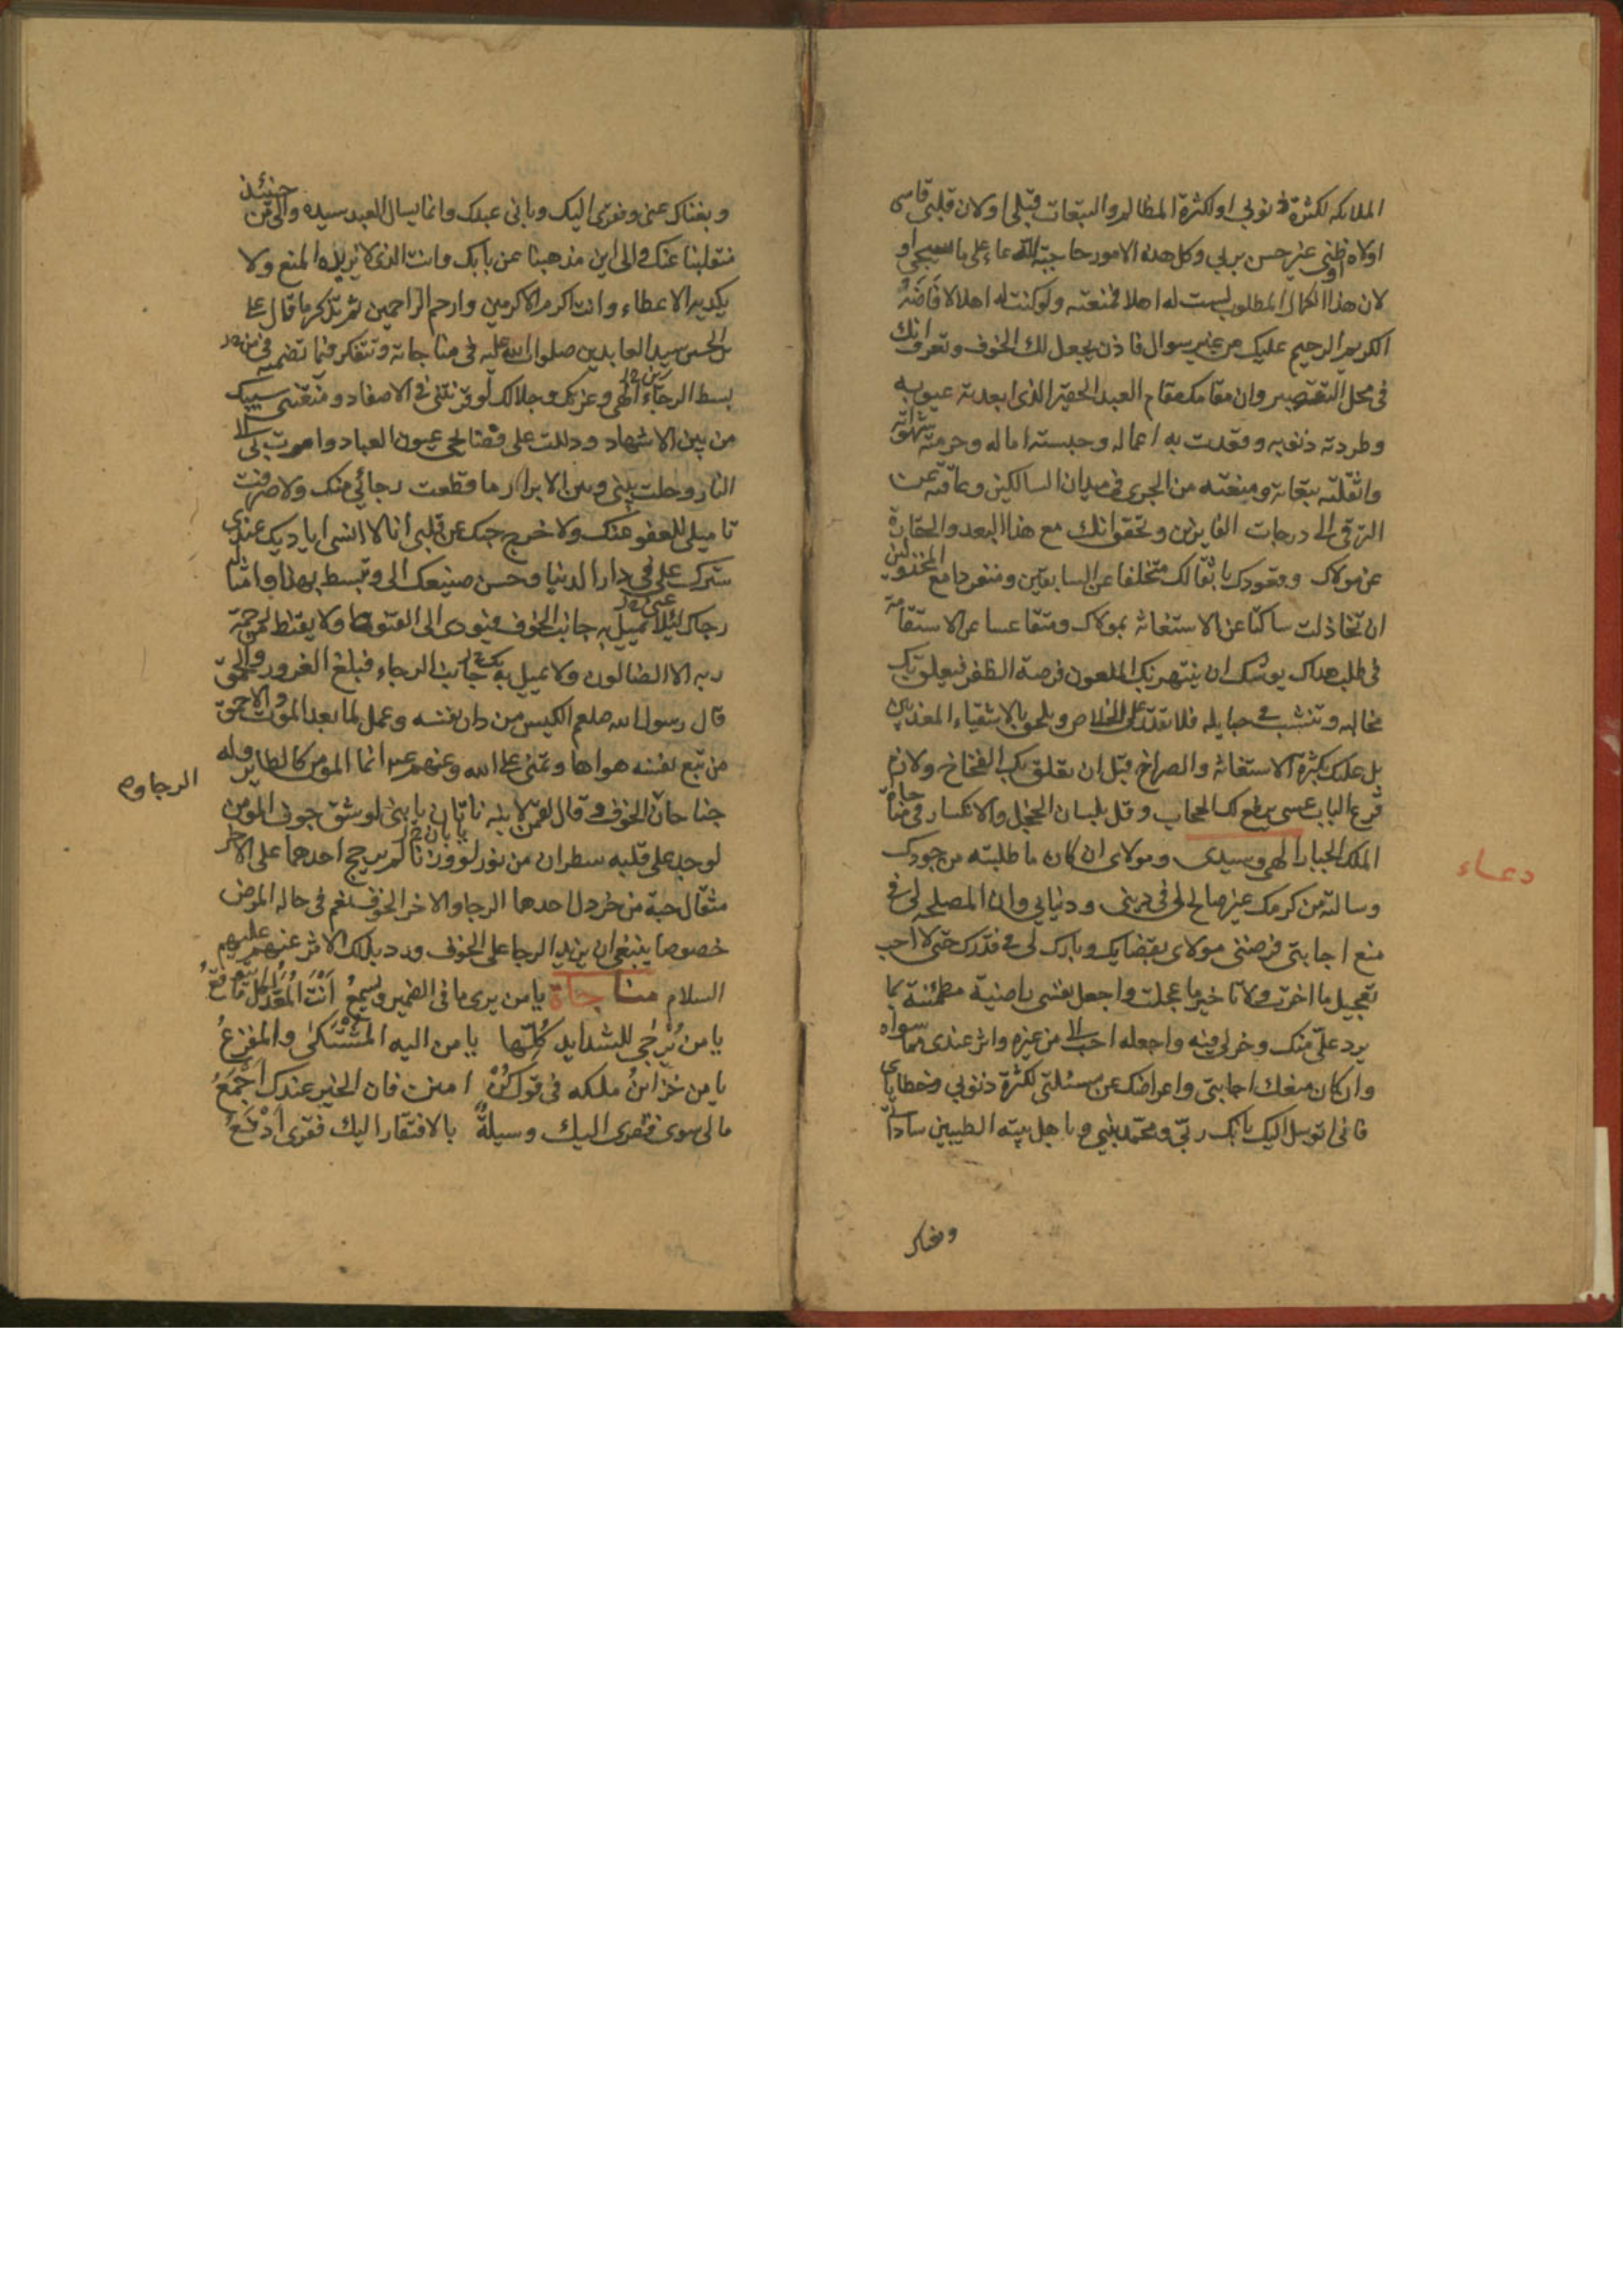 الملائكه لكثرة ذنوبى او لكثرة المظالم والتبعات قبلى او لان قلبى قاسى
اولاه او ظنى غير حسن بربى وكل هذه الامور حاجبة للدعاء على ما سيجى او
لان هذا الكمال المطلوب لست له اهلا فمنعته ولو كنت له اهلا لافاضه
الكريم الرحيم عليك من غير سوال فاذن يحصل لك الخوف وتعرف انك
فى محل التقصير وان مقامك مقام العبد الحقير الذى ابعدته عيوبه
وطردته ذنوبه وقعدت به اعماله وحبسته اماله وحرمته شهواته
واثقلته تبعاته ومنعته من الجرى فى ميدان السالكين وعاقته عن
الترقى الى درجات الفايزين وتحقق انك مع هذا البعد والحقارة
عن مولاك وقعودك باثقالك متخلفا عن السابقين ومنفردا مع المخذولين
ان تخاذلت ساكتا عن الاستغاثه بمولاك ومتقاعسا عن الاستقامة
فى طلب هداك يوشك ان ينتهز بك الملعون فرصة الظفر فيعلق بك
مخالبه وتنشب فى حبايله فلا تقدر على الخلاص وتلحق بالاشقياء المعذبين
بل عليك بكثرة الاستغاثه والصراخ قبل ان تعلق بك الفخاخ ولازم
قرع الباب عسى يرفع لك الحجاب وقل بلسان الخجل والانكسار فى مناجاة
الملك الجبار الهى وسيدى ومولاى ان كان ما طلبته من جودك
دعاء
وسالته من كرمك غير صالح لى فى دينى ودنياى وان المصلحه لى فى
منع اجابتى فرضنى مولاى بقضايك وبارك لى فى قدرك حتى لا احب
تعجيل ما اخرت ولا تاخير ما عجلت واجعل نفسى راضية مطمئنة بما
يرد على منك وخر لى فيه واجعله احب الى من غيره واثر عندى مما سواه
وان كان منعك اجابتى واعراضك عن مسئلتى لكثرة ذنوبى وخطاياى
فانى اتوسل اليك بانك ربى وبمحمد نبيى وباهل بيته الطيبين ساداتى
وبغناك عنى وفقرى اليك وبانى عبدك وانما يسال العبد سيده والى من حينئذ
منقلبنا عنك والى اين مذهبنا عن بابك وانت الذى لا يزيده المنع ولا
يكديه الاعطاء وانت اكرم الاكرمين وارحم الراحمين ثم تذكر ما قال على
بن الحسين سيد العابدين صلوات الله عليه فى مناجاته وتتفكر فيما تضمنه من
بسط الرجاء الهى وعزتك وجلالك لو قرنتنى فى الاصفاد ومنعتنى سيبك
من بين الاشهاد ودللت على فضايحى عيون العباد وامرت بى الى
النار وحلت بينى وبين الابرار ما قطعت رجائى منك ولا صرفت
تاميلى للعفو عنك ولا خرج حبك عن قلبى انا لا انسى اياديك عندى
سترك على فى دار الدنيا وحسن صنيعك الى وتبسط بهذا وامثاله
رجاك لئلا تميل به جانب الخوف فيودى الى القنوط ولا يقنط من رحمة
ربه الا الضالون ولا تميل بك جانب الرجاء فتبلغ الغرور والحمق
قال رسول الله صلعم الكيس من دان نفسه وعمل لما بعد الموت والاحمق
من تبع نفسه هواها وتمنى على الله وعنهم عم انما المومن كالطاير وله
جناحان الخوف و قال لقمن لابنه ناتان يا بنى لو شق جوف المومن
الرجاوه
لوجد على قلبه سطران من نور لو وزنا لم يرجح احدهما على الاخر
مثقال حبة من خردل احدهما الرجا والاخر الخوف نعم فى حاله المرض
خصوصا ينبغى ان يزيد الرجا على الخوف ورد بذلك الاثر عنهم عليهم
السلام مناجاة يا من يرى ما فى الضمير ويسمع انت المعد لكل ما يتوقع
يا من يرجى للشدايد كلها يا من اليه المشتكى والمفزع
يا من خزاين ملكه فى قول كن امنن فان الخير عندك اجمع
ما لى سوى فقرى اليك وسيلة بالافتقار اليك فقرى ادفع